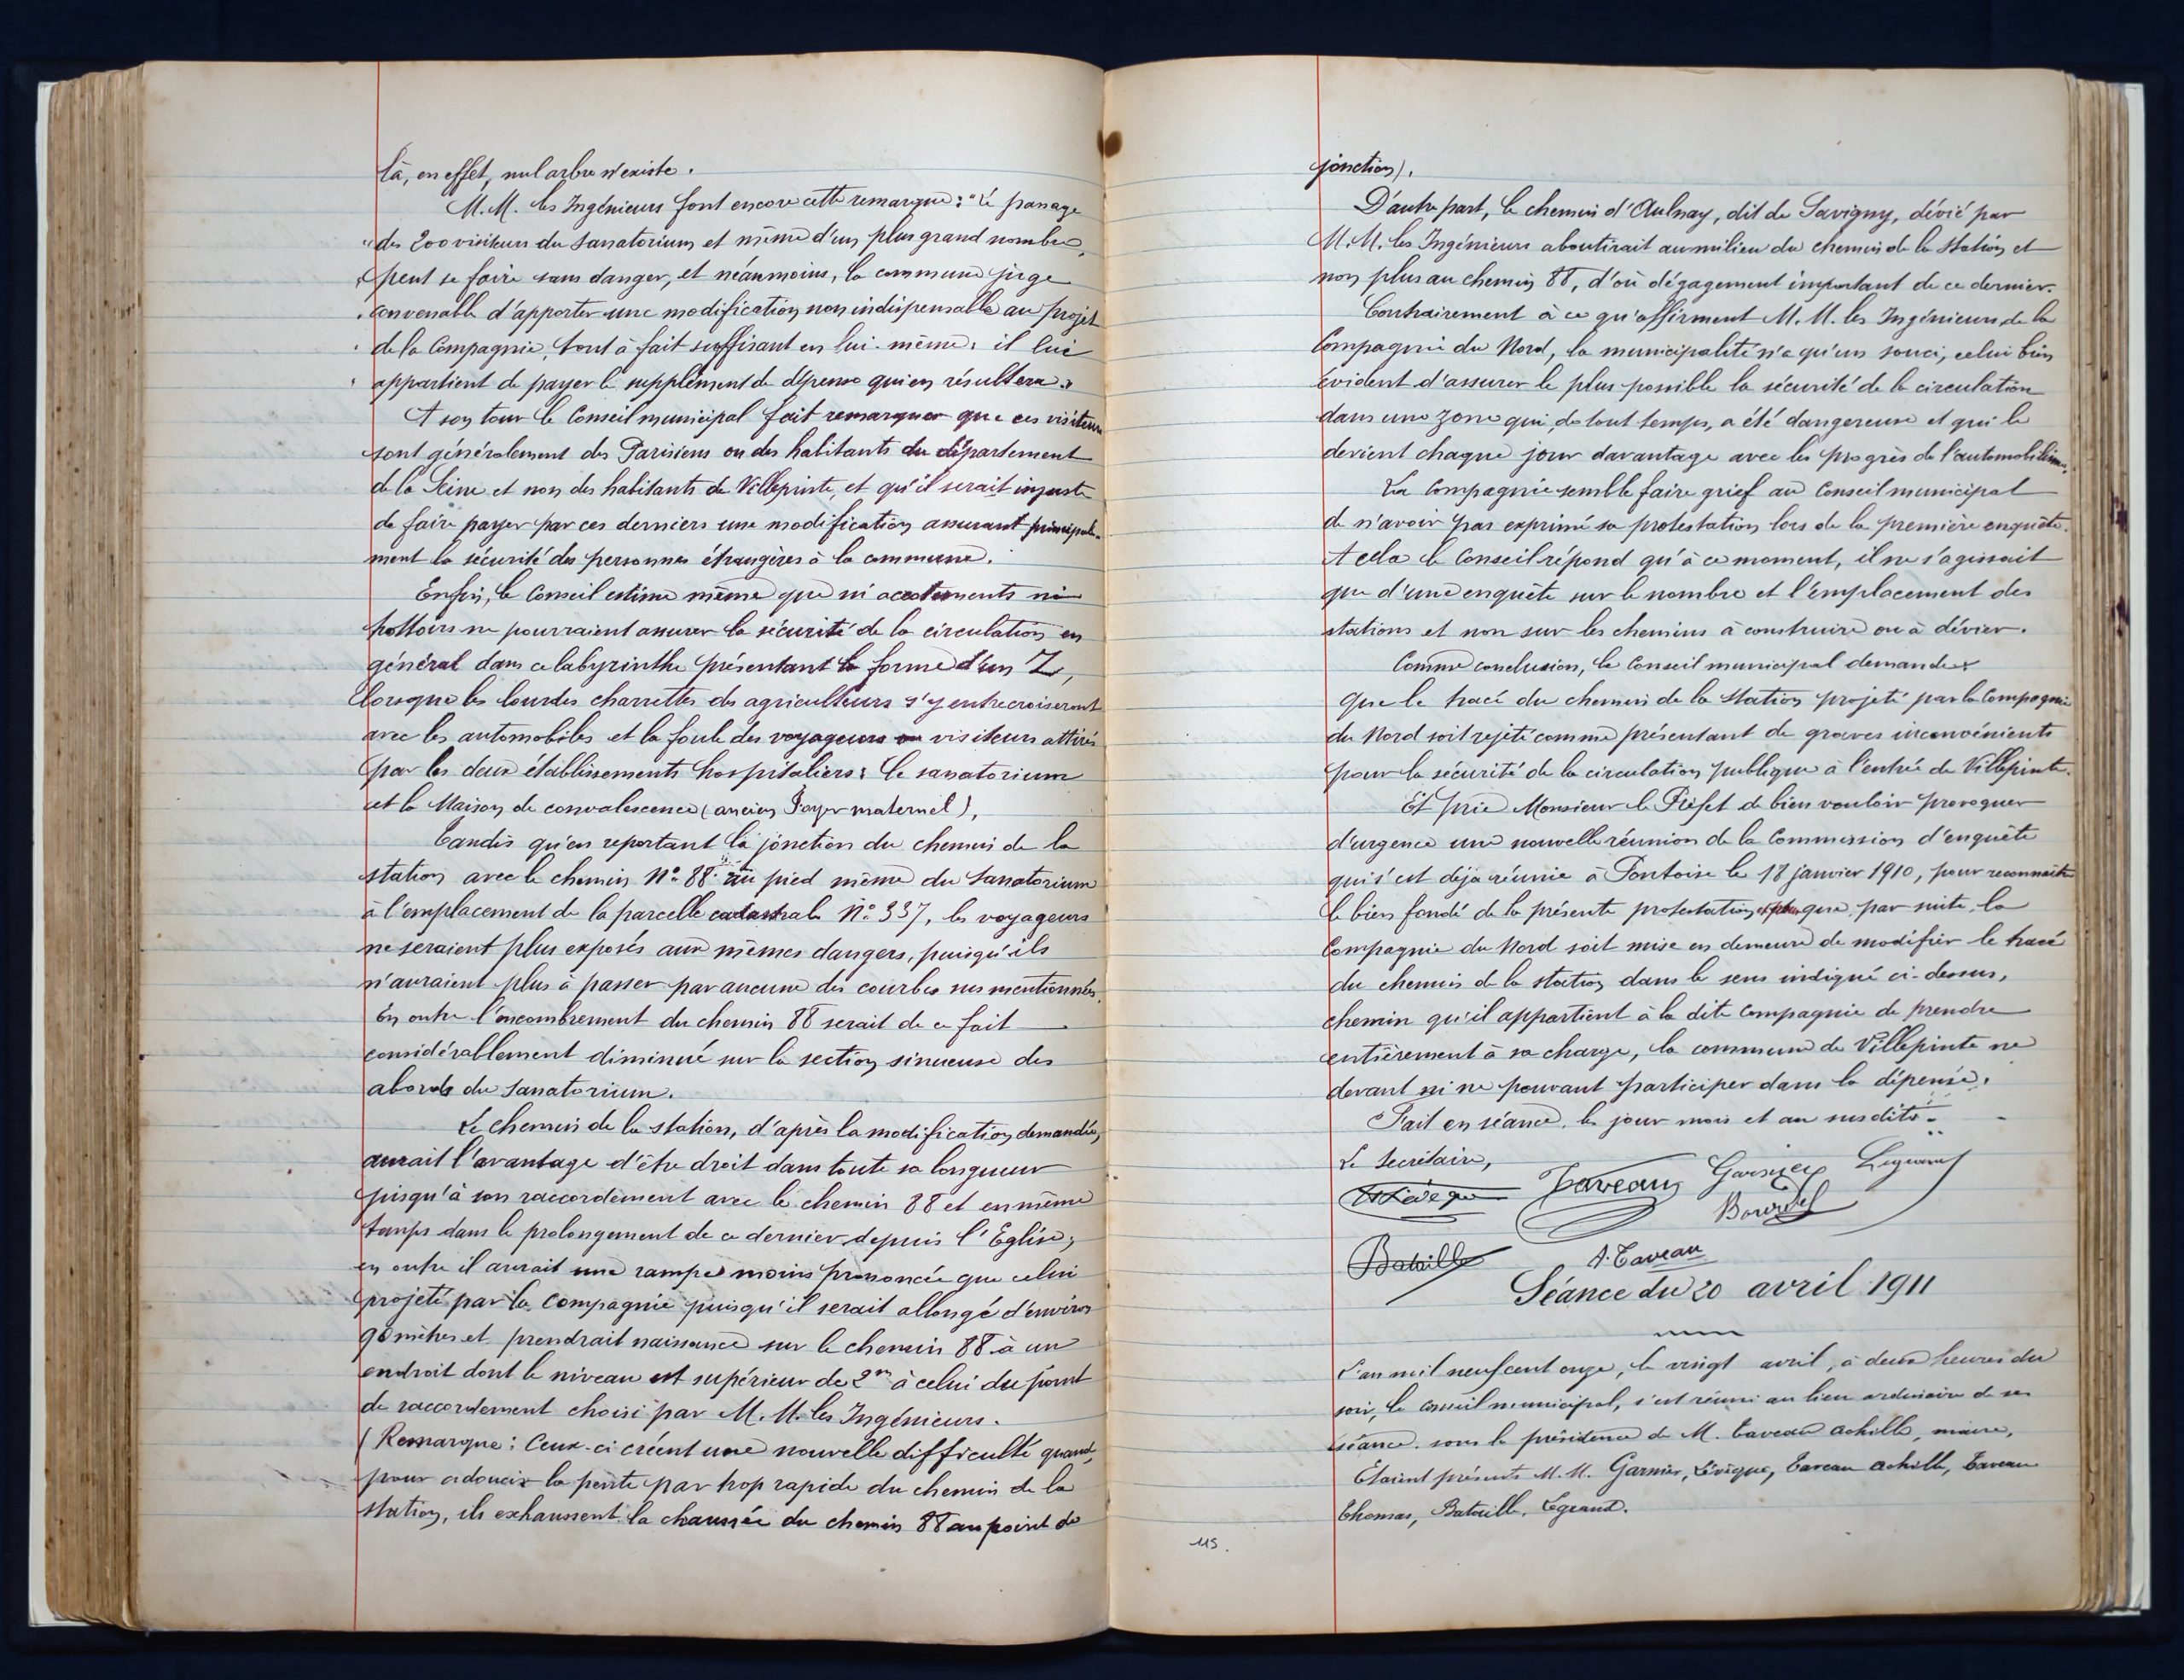 là, en effet, nul arbre n'existe.
M.M. les Ingénieurs font encore cette remarque : "Le passage
"des 200 visiteurs du Sanatorium et même d'un plus grand nombre,
"peut se faire sans danger, et néanmoins, la commune juge
"convenable d'apporter une modification non indispensable au projet
"de la Compagnie, tout à fait suffisant en lui-même : il lui
"appartient de payer le supplément de dépense qui en résultera."
A son tour le Conseil municipal fait remarquer que ces visiteurs
sont généralement des Parisiens ou des habitants du département
de la Seine et non des habitants de Villepinte, et qu'il serait injuste
de faire payer par ces derniers une modification assurant principale-
ment la sécurité des personnes étrangères à la commune.
Enfin, le Conseil estime même que ni accotements ni
trottoirs ne pourraient assurer la sécurité de la circulation en
général dans ce labyrinthe présentant la forme d'un Z,
lorsque les lourdes charrettes des agriculteurs s'y entrecroiseront
avec les automobiles et la foule des voyageurs ou visiteurs attirés
par les deux établissements hospitaliers : le sanatorium
et la Maison de convalescence (ancien Foyer maternel),
Tandis qu'en reportant la jonction du chemin de la
station avec le chemin N° 88 au pied même du Sanatorium
à l'emplacement de la parcelle cadastrale N° 337, les voyageurs
ne seraient plus exposés aux mêmes dangers, puisqu'ils
n'auraient plus à passer par aucune des courbes sus mentionnées.
En outre l'encombrement du chemin 88 serait de ce fait
considérablement diminué sur la section sinueuse des
abords du Sanatorium.
Le chemin de la station, d'après la modification demandée,
aurait l'avantage d'être droit dans toute sa longueur
jusqu'à son raccordement avec le chemin 88 et en même
temps dans le prolongement de ce dernier depuis l'Eglise,
en outre il aurait une rampe moins prononcée que celui
projeté par la Compagnie puisqu'il serait allongé d'environ
90 mètres et prendrait naissance sur le chemin 88 à un
endroit dont le niveau est supérieur de 2m à celui du point
de raccordement choisi par M.M. les Ingénieurs.
(Remarque : Ceux-ci créent une nouvelle difficulté quand,
pour adoucir la pente par trop rapide du chemin de la
station, ils exhaussent la chaussée du chemin 88 au point de
jonction).
D'autre part, le chemin d'Aulnay, dit de Savigny, dévié par
M.M. les Ingénieurs aboutirait au milieu du chemin de la station et
non plus au chemin 88, d'où dégagement important de ce dernier.
Contrairement à ce qu'affirment M.M. les Ingénieurs de la
Compagnie du Nord, la municipalité n'a qu'un souci, celui bien
évident d'assurer le plus possible la sécurité de la circulation
dans une zone qui, de tout temps, a été dangereuse et qui le
devient chaque jour davantage avec les progrès de l'automobilisme.
La Compagnie semble faire grief au Conseil municipal
de n'avoir pas exprimé sa protestation lors de la première enquête.
A cela le Conseil répond qu'à ce moment, il ne s'agissait
que d'une enquête sur le nombre et l'emplacement des
stations et non sur les chemins à construire ou à dévier.
Comme conclusion, le Conseil municipal demande
que le tracé du chemin de la station projeté par la Compagnie
du Nord soit rejeté comme présentant de graves inconvénients
pour la sécurité de la circulation publique à l'entrée de Villepinte.
Et prie Monsieur le Préfet de bien vouloir provoquer
d'urgence une nouvelle réunion de la Commission d'enquête
qui s'est déjà réunie à Pontoise le 18 janvier 1910, pour reconnaître
le bien fondé de la présente protestation que par suite la
Compagnie du Nord soit mise en demeure de modifier le tracé
du chemin de la station dans le sens indiqué ci-dessus,
chemin qu'il appartient à la dite Compagnie de prendre
entièrement à sa charge, la commune de Villepinte ne
devant ni ne pouvant participer dans la dépense.
Fait en séance, les jour mois et an susdits.
Le Secrétaire,
Lévêque Taveau Garnier Legrand
Bourdel
Bataille A. Taveau
Séance du 20 avril 1911
L'an mil neuf cent onze, le vingt avril, à deux heures du
soir, le conseil municipal, s'est réuni au lieu ordinaire de ses
séances sous la présidence de M. Taveau Achille, maire,
Étaient présents M.M. Garnier, Lévêque, Taveau Achille, Taveau
Thomas, Bataille, Legrand.
115.